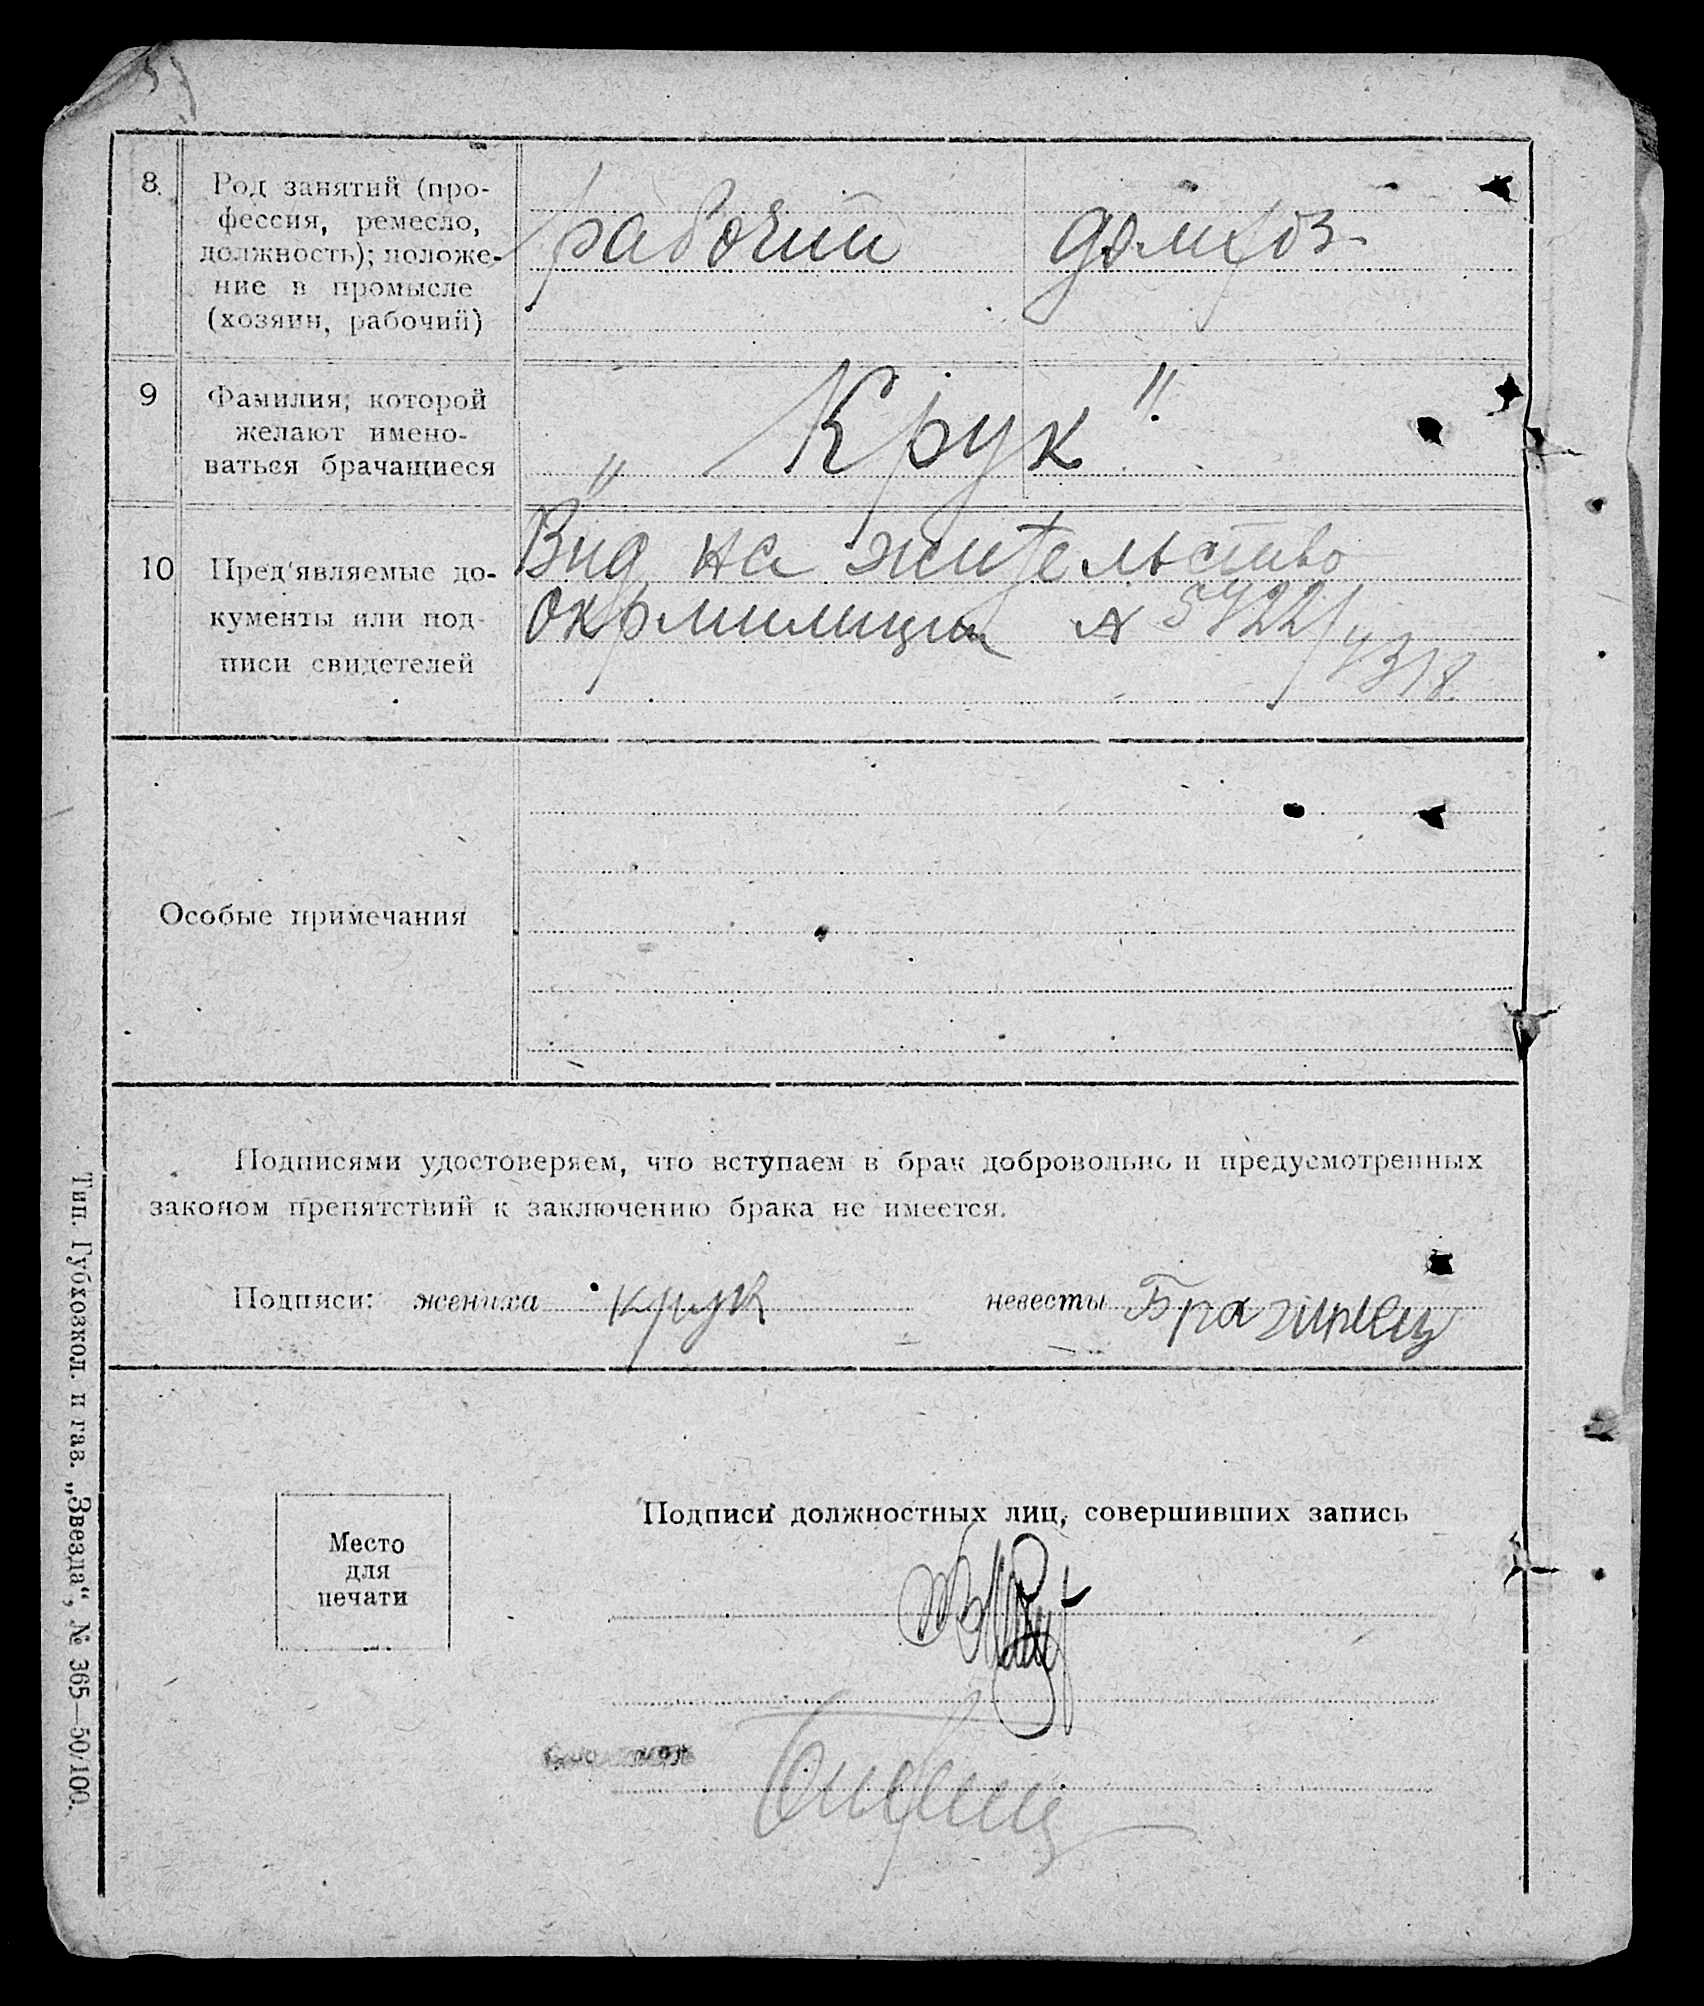 8. Род занятий (про-
фессия, ремесло,
должность); положе-
ние в промысле
(хозяин, рабочий)
рабочий домхоз
9 Фамилия, которой
желают имено-
ваться брачащиеся
„Крук"
10 Пред'являемые до-
кументы или под-
писи свидетелей
Вид на жительство
Окрмилиции № 5722/4318
Особые примечания
Подписями удостоверяем, что вступаем в брак добровольно и предусмотренных
законом препятствий к заключению брака не имеется.
Подписи: жениха Крук невесты Брагинец
Место
для
печати
Подписи должностных лиц, совершивших запись
Тип. Губхозкол. и газ. „Звезда“, № 365—50/100.